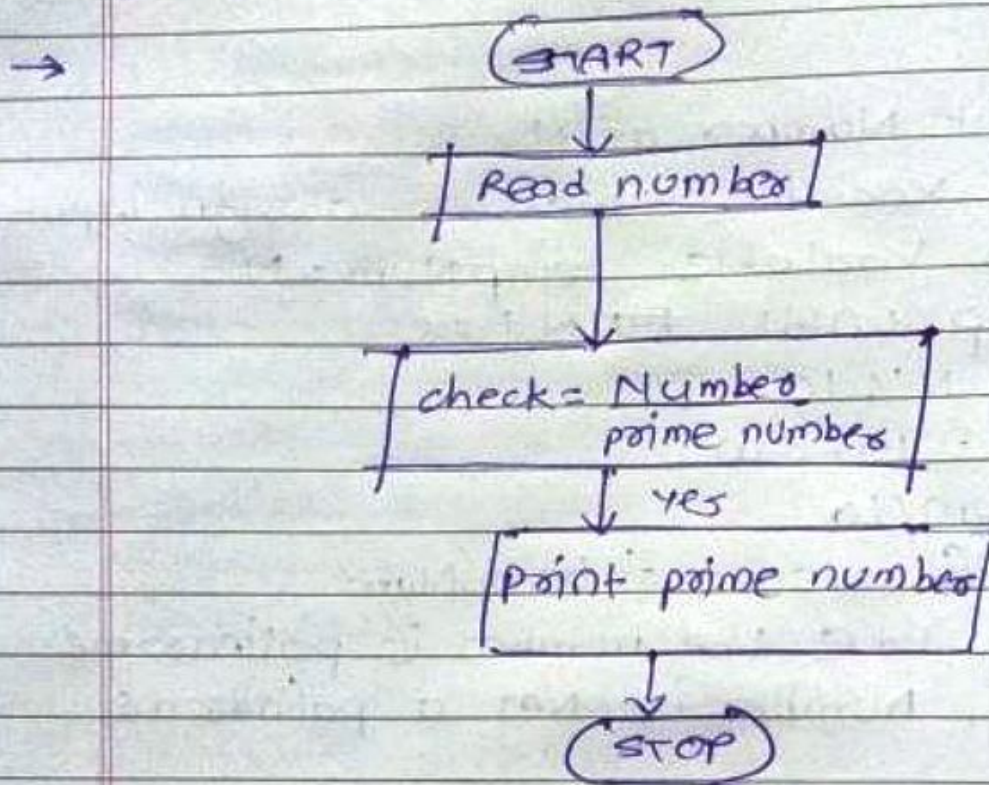 →
START
Read number
check = Number
prime number
yes
print prime number
STOP